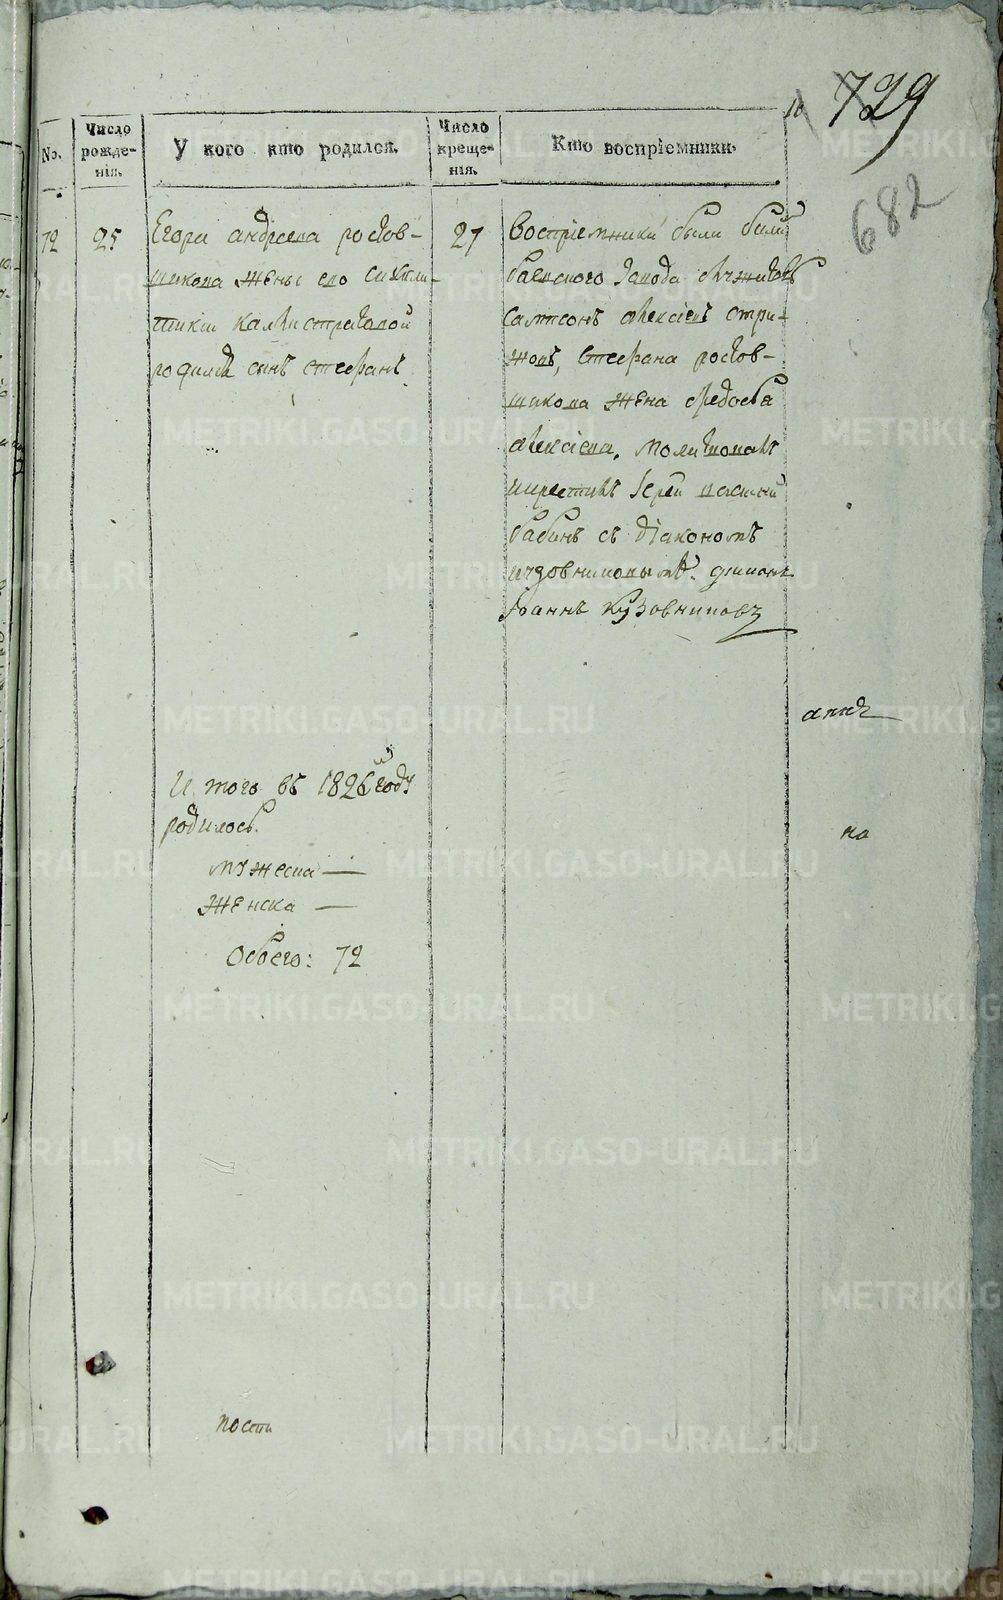 10
729
682
No.
Число рожде-нія.
У кого кто родился.
Число креще-нія.
Кто воспріемники.
72
25
Егора андреева ростов-
щикова жены его
калистратовой
родился сынъ стефанъ
27
Воспріемники были
Самсонъ алексіевъ стри-
жовъ, Стефана ростов-
щикова жена Федосья
алексіева. молитвовалъ
икрестилъ Іерей
бабинъ съ діакономъ
кузовниковымъ. діаконъ
Іоаннъ Кузовниковъ
И того въ 1826й году
родилось.
мужеска —
Женска —
Обоего: 72
по
METRIKI.GASO-URAL.RU